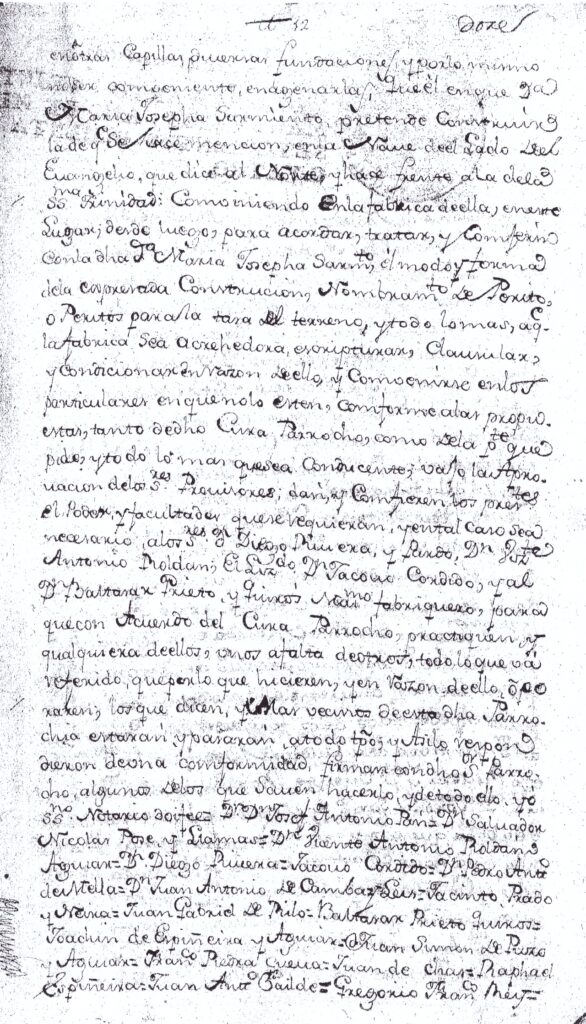 12 doze
en otras Capillas, diversas fundaciones, y por lo mismo
no ser combeniente, enagenarla; Que él en que Dª
Maria Josepha Sarmiento, pretende Construir
la de qe Se hace mencion, en la Nave de el Lado del
Evangelio, que dice al Norte, y hace frente a la de la
SSma Trinidad: Combiniendo En la fabrica de ella, en este
Lugar; desde luego, para acordar, tratar, y Comferir
Con la dha Dª Maria Josepha Sarmto, el modo, y forma
de la expresada Construcion, Nombramto de Perito,
o Peritos para la tasa del terreno, y todo lo mas, a qe
la fabrica Sea Acrehedora, escripturar, Clausular,
y Condicionar en Razon de ello, y Combenirse en los
particulares en que no lo esten, comforme a las propue
estas, tanto de dho Cura Parrocho, como de la pte que
pide, y todo lo mas que sea Conducente; vajo la Apro
vacion de los Sres Provisores; dan, y Comfieren los presentes
el Poder, y facultades que se requieran, y en tal caso sea
necesario, a los Sres Dn Diego Rivera, y Pardo, Dn Vizte
Antonio Roldan, El Lizdo Dn Jacovo Cordido, y al
Dn Baltasar Prieto, y Quiros fabriquero, para
que con Acuerdo del Cura Parrocho, practiquen, y
qualquiera de ellos, unos a falta de otros, todo lo que vá
referido, que por lo que hicieren, y en Razon de ello, ope
raren, los que dicen, y Mas vecinos de esta dha Parro
chia estarán, y pasarán, a todo tpo; y Asi lo respon
dieron de una comformidad, firman con dho Sor Parro
cho, algunos de los que Saven hacerlo, y de todo ello, yo
Notario doy fee= Dr Dn Josef Antonio Pan= Dn Salvador
Nicolas Pose, y Llamas= Dn Vicente Antonio Roldan
Aguiar= Dn Diego Rivera= Jacovo Cordido= Dn Pedro Anto
de Mella= Dn Juan Antonio de Camba= Luis= Jacinto Prado
y Neira= Juan Gabriel de Milo= Baltasar Prieto Quiros=
Joachin de Espiñeira y Aguiar= Juan Simon de Pazo
y Aguiar= Franco Piedra Cueva= Juan de Chas= Raphael
Espiñeira= Juan Anto Bailde= Gregorio Franco Rey=